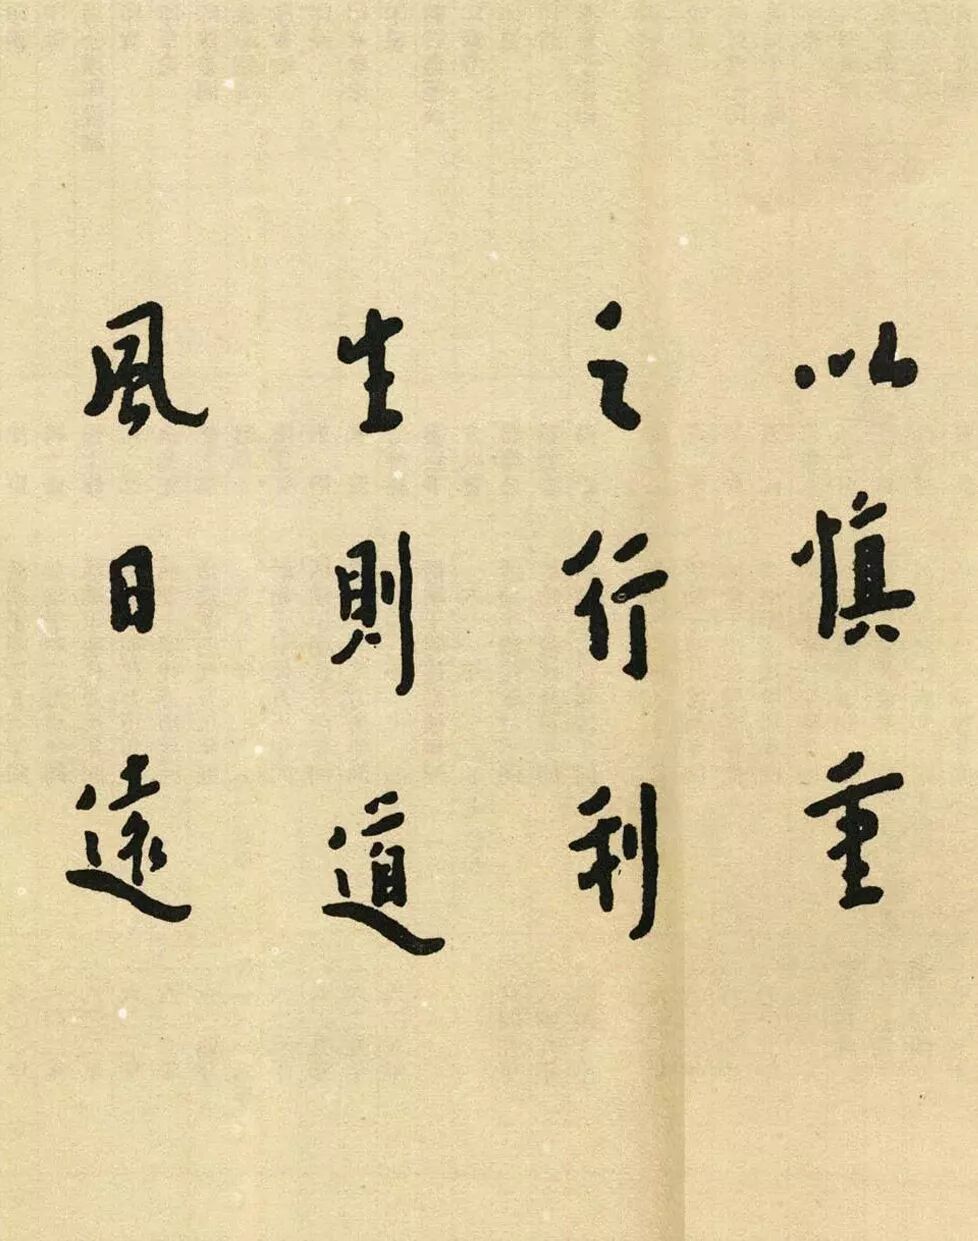 以慎重
之行利
生則道
風日遠